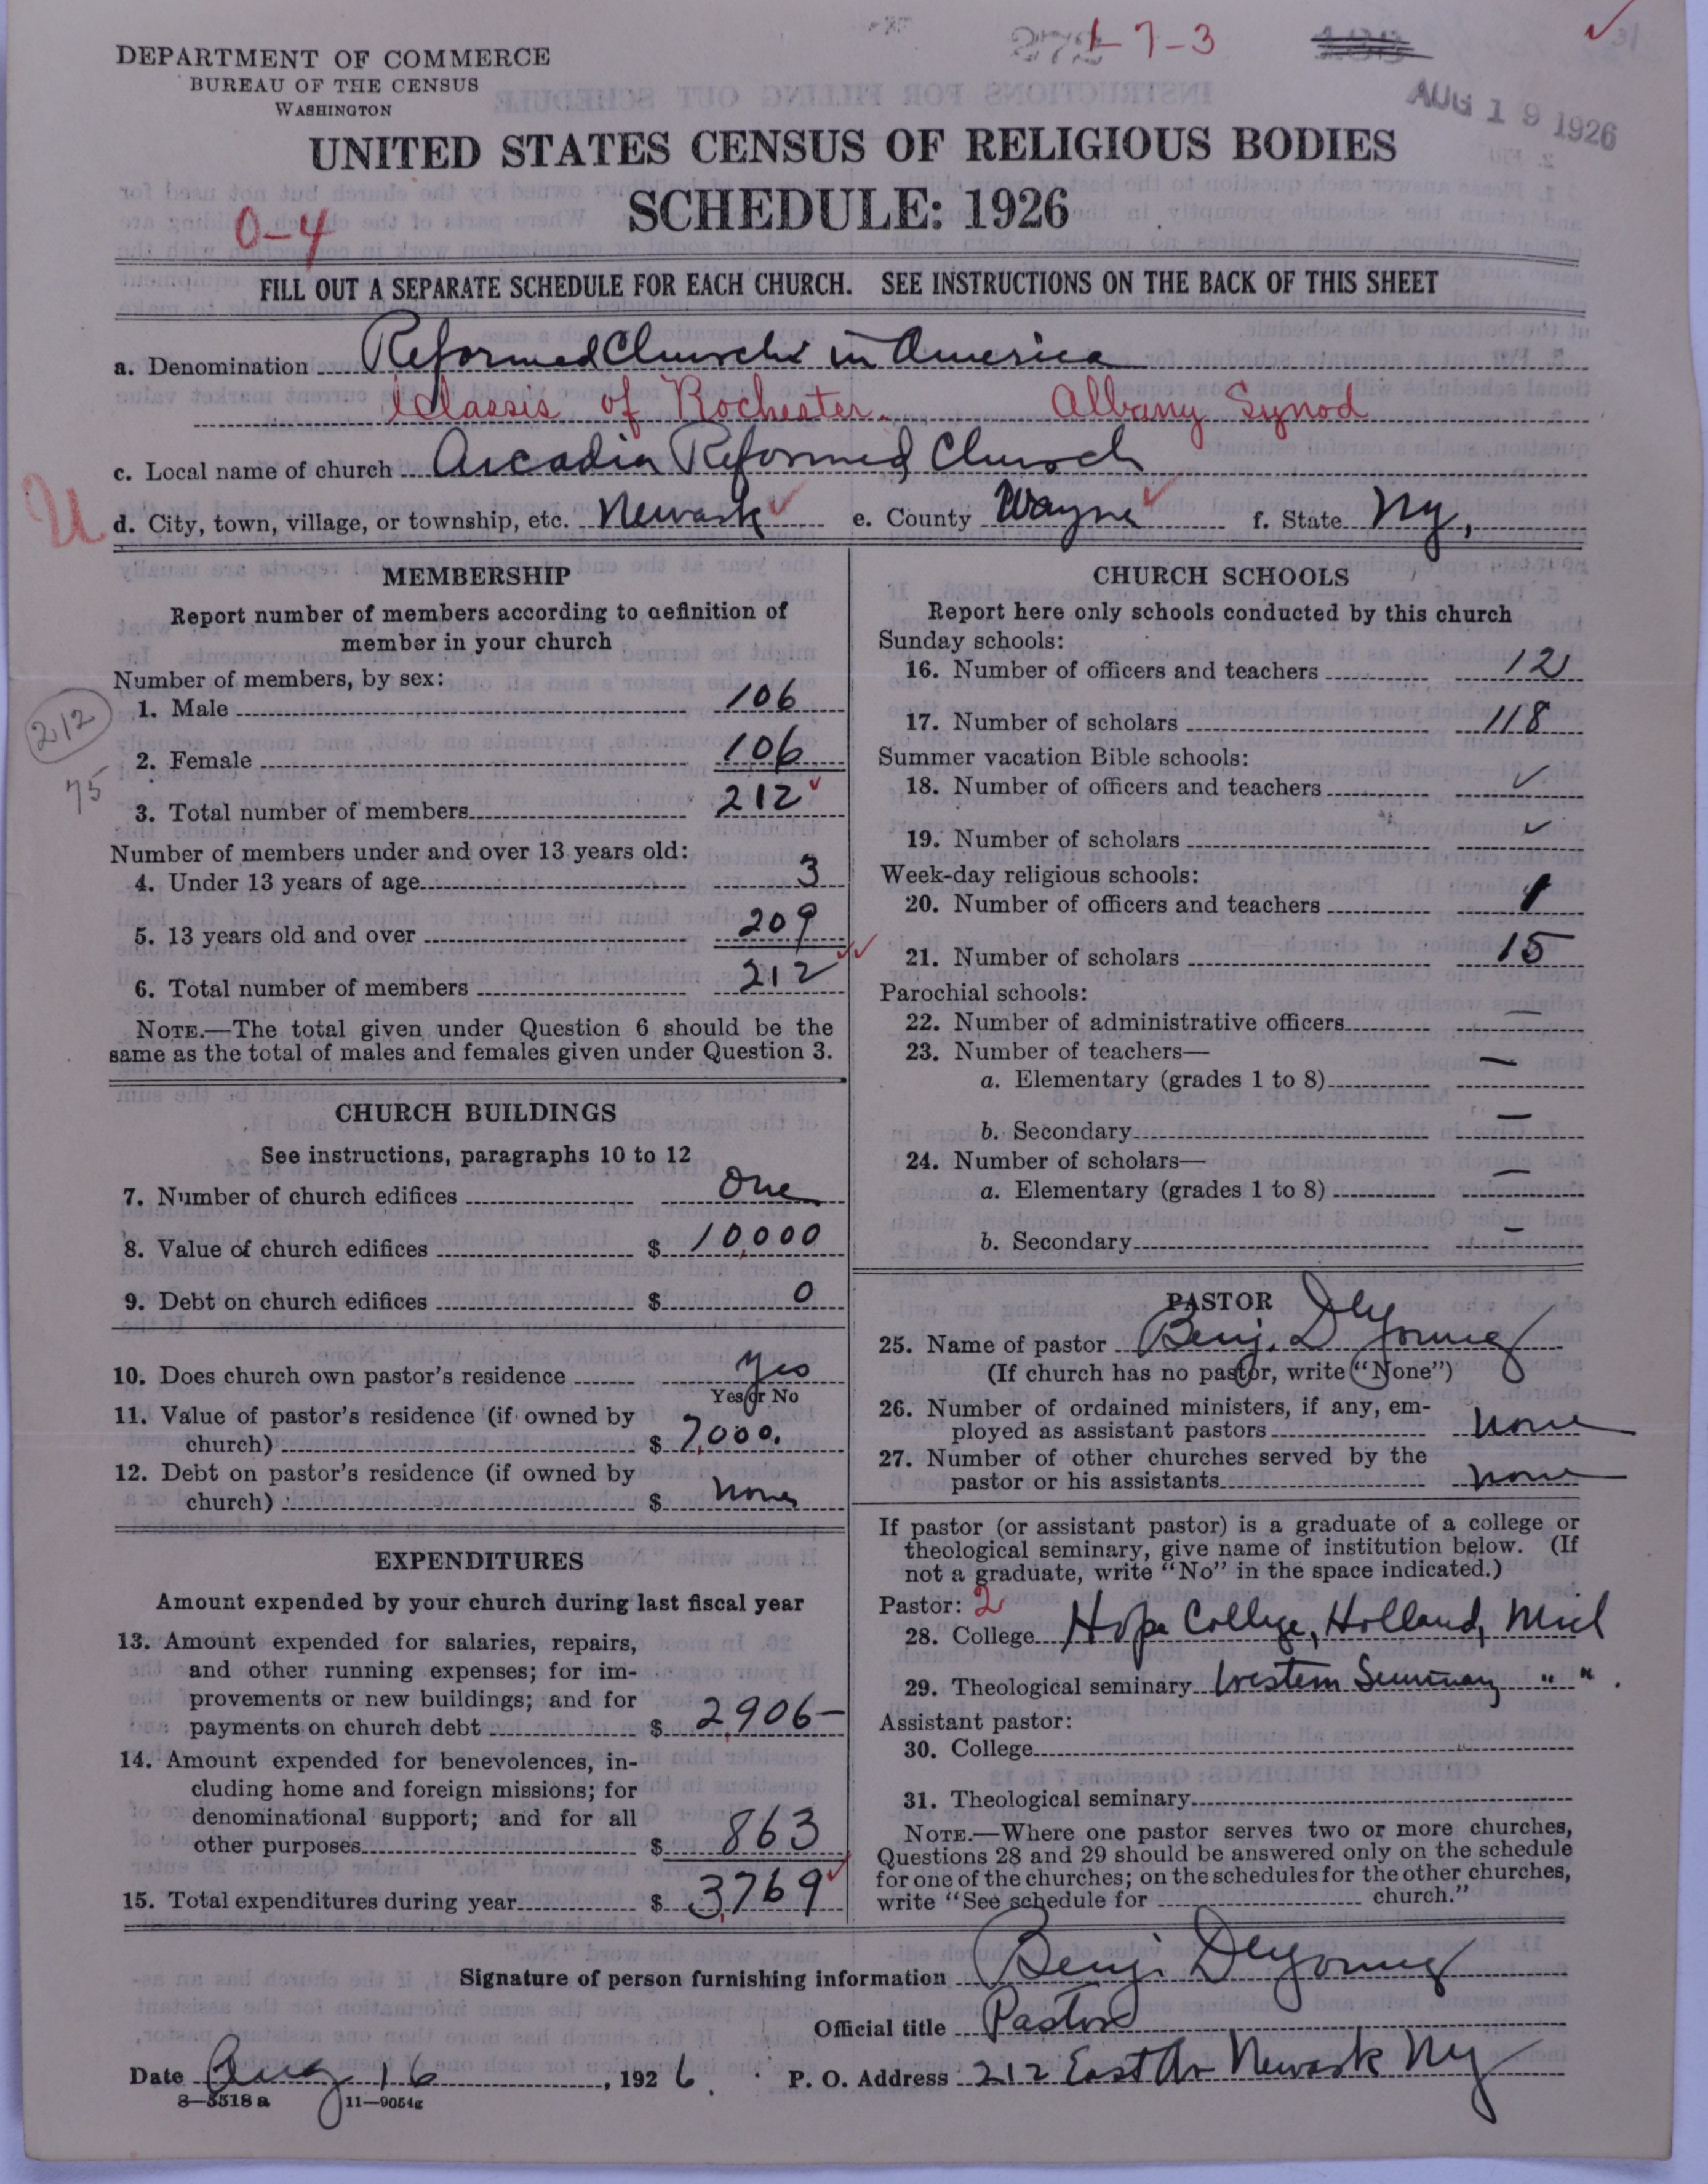 1-7-3
AUG 19 1926
DEPARTMENT OF COMMERCE
BUREAU OF THE CENSUS
WASHINGTON
UNITED STATES CENSUS OF RELIGIOUS BODIES
SCHEDULE: 1926
0-4
FILL OUT A SEPARATE SCHEDULE FOR EACH CHURCH. SEE INSTRUCTIONS ON THE BACK OF THIS SHEET
a. Denomination Reformed Church in America
Classis of Rochester. Albany Synod
c. Local name of church Arcadia Reformed Church
U
d. City, town, village, or township, etc. Newark ✓ e. County Wayne ✓ f. State Ny,
MEMBERSHIP
Report number of members according to definition of
member in your church
Number of members, by sex:
1. Male 106
212
2. Female 106
75
3. Total number of members 212 ✓
Number of members under and over 13 years old:
4. Under 13 years of age 3
5. 13 years old and over 209
6. Total number of members 212 ✓✓
NOTE.—The total given under Question 6 should be the
same as the total of males and females given under Question 3.
CHURCH BUILDINGS
See instructions, paragraphs 10 to 12
7. Number of church edifices One
8. Value of church edifices $ 10,000
9. Debt on church edifices $ 0
10. Does church own pastor's residence yes
Yes or No
11. Value of pastor's residence (if owned by
church) $ 7,000.
12. Debt on pastor's residence (if owned by
church) $ none
EXPENDITURES
Amount expended by your church during last fiscal year
13. Amount expended for salaries, repairs,
and other running expenses; for im-
provements or new buildings; and for
payments on church debt $ 2,906—
14. Amount expended for benevolences, in-
cluding home and foreign missions; for
denominational support; and for all
other purposes $ 863
15. Total expenditures during year $ 3,769 ✓
CHURCH SCHOOLS
Report here only schools conducted by this church
Sunday schools:
16. Number of officers and teachers 12
17. Number of scholars 118
Summer vacation Bible schools:
18. Number of officers and teachers ✓
19. Number of scholars ✓
Week-day religious schools:
20. Number of officers and teachers 1
21. Number of scholars 15
Parochial schools:
22. Number of administrative officers —
23. Number of teachers—
a. Elementary (grades 1 to 8) —
b. Secondary —
24. Number of scholars—
a. Elementary (grades 1 to 8) —
b. Secondary —
PASTOR
25. Name of pastor Benj. DeYoung
(If church has no pastor, write "None")
26. Number of ordained ministers, if any, em-
ployed as assistant pastors none
27. Number of other churches served by the
pastor or his assistants none
If pastor (or assistant pastor) is a graduate of a college or
theological seminary, give name of institution below. (If
not a graduate, write "No" in the space indicated.)
Pastor: 2
28. College Hope College, Holland, Mich
29. Theological seminary Western Seminary " " .
Assistant pastor:
30. College
31. Theological seminary
NOTE.—Where one pastor serves two or more churches,
Questions 28 and 29 should be answered only on the schedule
for one of the churches; on the schedules for the other churches,
write "See schedule for church."
Signature of person furnishing information Benj. DeYoung
Official title Pastor
Date Aug 16, 1926. P. O. Address 212 East Av Newark Ny
8—5518 a 11—9054g